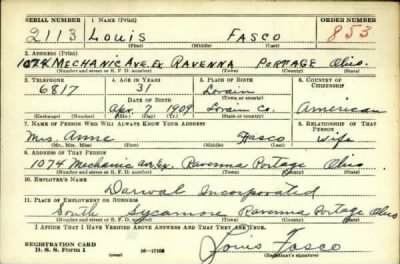 SERIAL NUMBER 1. NAME (Print) ORDER NUMBER
2113 Louis Fasco 853
(First) (Middle) (Last)
2. ADDRESS (Print)
1074 MECHANIC AVE. EX RAVENNA PORTAGE Ohio.
(Number and street or R. F. D. number) (Town) (County) (State)
3. TELEPHONE 4. AGE IN YEARS 5. PLACE OF BIRTH 6. COUNTRY OF CITIZENSHIP
6817 31 Lorain
DATE OF BIRTH (Town or county)
Apr. 7 1909 Lorain Co. American
(Exchange) (Number) (Mo.) (Day) (Yr.) (State or country)
7. NAME OF PERSON WHO WILL ALWAYS KNOW YOUR ADDRESS 8. RELATIONSHIP OF THAT PERSON
Mrs. Anne Fasco Wife
(Mr., Mrs., Miss) (First) (Middle) (Last)
9. ADDRESS OF THAT PERSON
1074 Mechanic Ave. Ex. Ravenna Portage Ohio
(Number and street or R. F. D. number) (Town) (County) (State)
10. EMPLOYER'S NAME
Incorporated
11. PLACE OF EMPLOYMENT OR BUSINESS
South Sycamore Ravenna Portage Ohio
(Number and street or R. F. D. number) (Town) (County) (State)
I AFFIRM THAT I HAVE VERIFIED ABOVE ANSWERS AND THAT THEY ARE TRUE.
REGISTRATION CARD Louis Fasco
D. S. S. Form 1 (Registrant's signature)